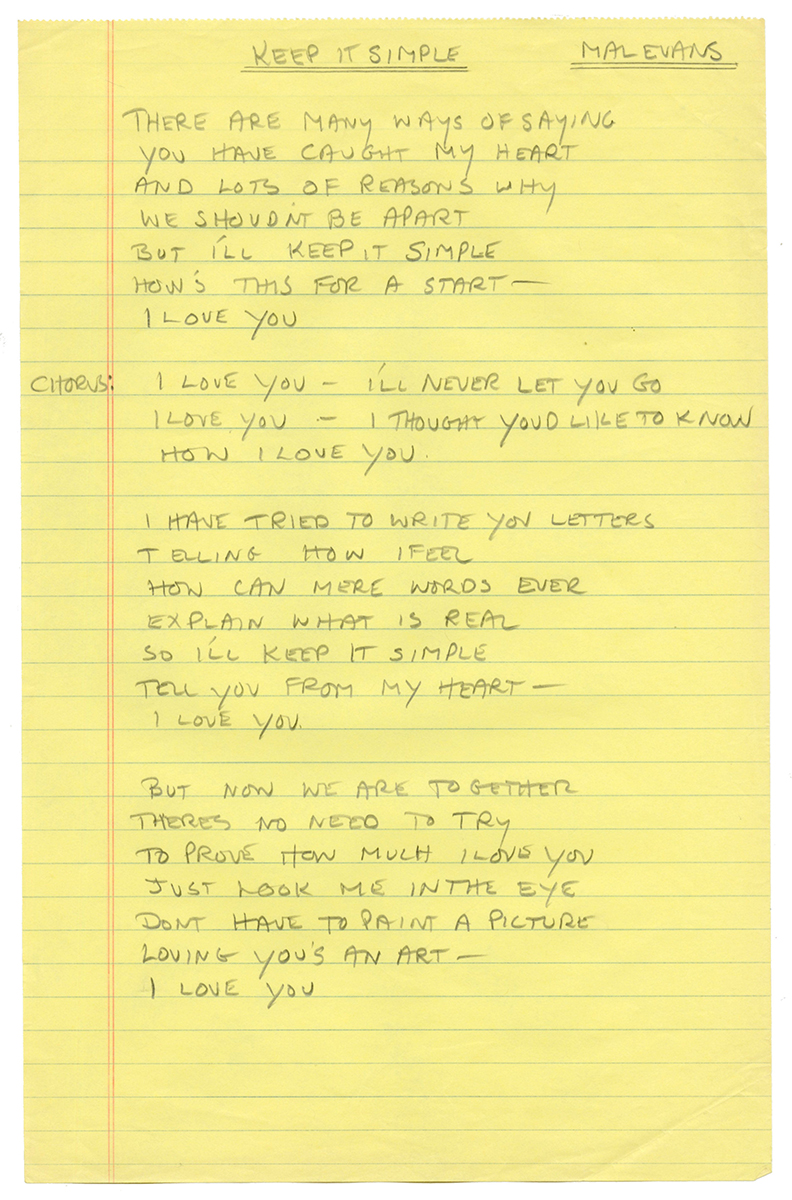 KEEP IT SIMPLE MAL EVANS
THERE ARE MANY WAYS OF SAYING
YOU HAVE CAUGHT MY HEART
AND LOTS OF REASONS WHY
WE SHOUDN'T BE APART
BUT I'LL KEEP IT SIMPLE
HOW'S THIS FOR A START —
I LOVE YOU
CHORUS: I LOVE YOU – I'LL NEVER LET YOU GO
I LOVE YOU – I THOUGHT YOUD LIKE TO KNOW
HOW I LOVE YOU.
I HAVE TRIED TO WRITE YOU LETTERS
TELLING HOW I FEEL
HOW CAN MERE WORDS EVER
EXPLAIN WHAT IS REAL
SO I'LL KEEP IT SIMPLE
TELL YOU FROM MY HEART —
I LOVE YOU.
BUT NOW WE ARE TOGETHER
THERES NO NEED TO TRY
TO PROVE HOW MUCH I LOVE YOU
JUST LOOK ME IN THE EYE
DONT HAVE TO PAINT A PICTURE
LOVING YOU'S AN ART —
I LOVE YOU